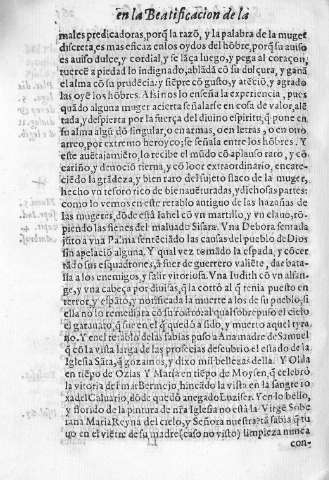 en la Beatificacion de la
males predicadoras, porq̃ la razõ, y la palabra de la muger
discreta, es mas eficaz en los oydos del hõbre, porq̃ su auiso
es auiso dulce, y cordial, y se lãça luego, y pega al coraçon,
tuerce a piedad lo indignado, ablãda cõ su dulçura, y gana
el alma cõ su prudẽcia, y siẽpre cõ gusto, y atẽciõ, y agrado
las oye el hõbre. A si nos lo enseña la experiencia, pues
quãdo alguna muger acierta señalarse en cosa de valor, alẽ
tada, y despierta por la fuerça del diuino espiritu, q̃ pone en
su alma algũ dõ singular, o en armas, o en letras, o en otro
arreo, por extremo heroyco; se señala entre los hõbres. Y
este auẽtajamiẽto, lo recibe el mũdo cõ aplauso raro, y cõ
cariño, y deuociõ tierna, y cõ loor extraordinario, encare-
ciẽdo la grãdeza, y bien raro del sujeto flaco de la muger,
hecho vn tesoro rico de bienauẽturadas, y dichosas partes:
como lo vemos en este retablo antiguo de las hazañas de
las mugeres, dõde està Iahel cõ vn martillo, y vn clauo, rõ-
piendo las sienes del maluado Sisara. Vna Debora sentada
jũto a vna Palma sentẽciãdo las causas del pueblo de Dios
sin apelaciõ alguna. Y qual vez tomãdo la espada, y cocer
rãdo sus esquadrones, q̃ fuer de guerrero valiẽte, dar bata-
lla a los enemigos, y salir vitoriosa. Vna Iudith cõ vn alfan-
ge, y vna cabeça por diuisa, q̃ la cortò al q̃ tenia puesto en
terror, y espãto, y notificada la muerte a los de su pueblo, si
ella no lo remediara cõ su rostro: al qual sobrepuso el cielo
el garauato, q̃ fue en el q̃ quedò asido, y muerto aquel tyra
no. Y en el retablo de las sabias puso a Ana madre de Samuel
q̃ cõ la vista larga de las profecias descubrio el estado de la
Iglesia Sãta, q̃ gozamos, y dixo mil bellezas della. Y Olda
en tiẽpo de Ozias Y Maria en tiẽpo de Moysen, q̃ celebrò
la vitoria del mar Bermejo, hincãdo la vista en la sangre ro
xa del Caluario, dõde quedò anegado Luzifer. Y en lo bello,
y florido de la pintura de nr̃a Iglesia no està la Virgẽ Sobe
rana Maria Reyna del cielo, y Señora nuestra? sabia q̃ tu-
uo en el viẽtre de su madre (caso no visto) limpieza nunca
con-